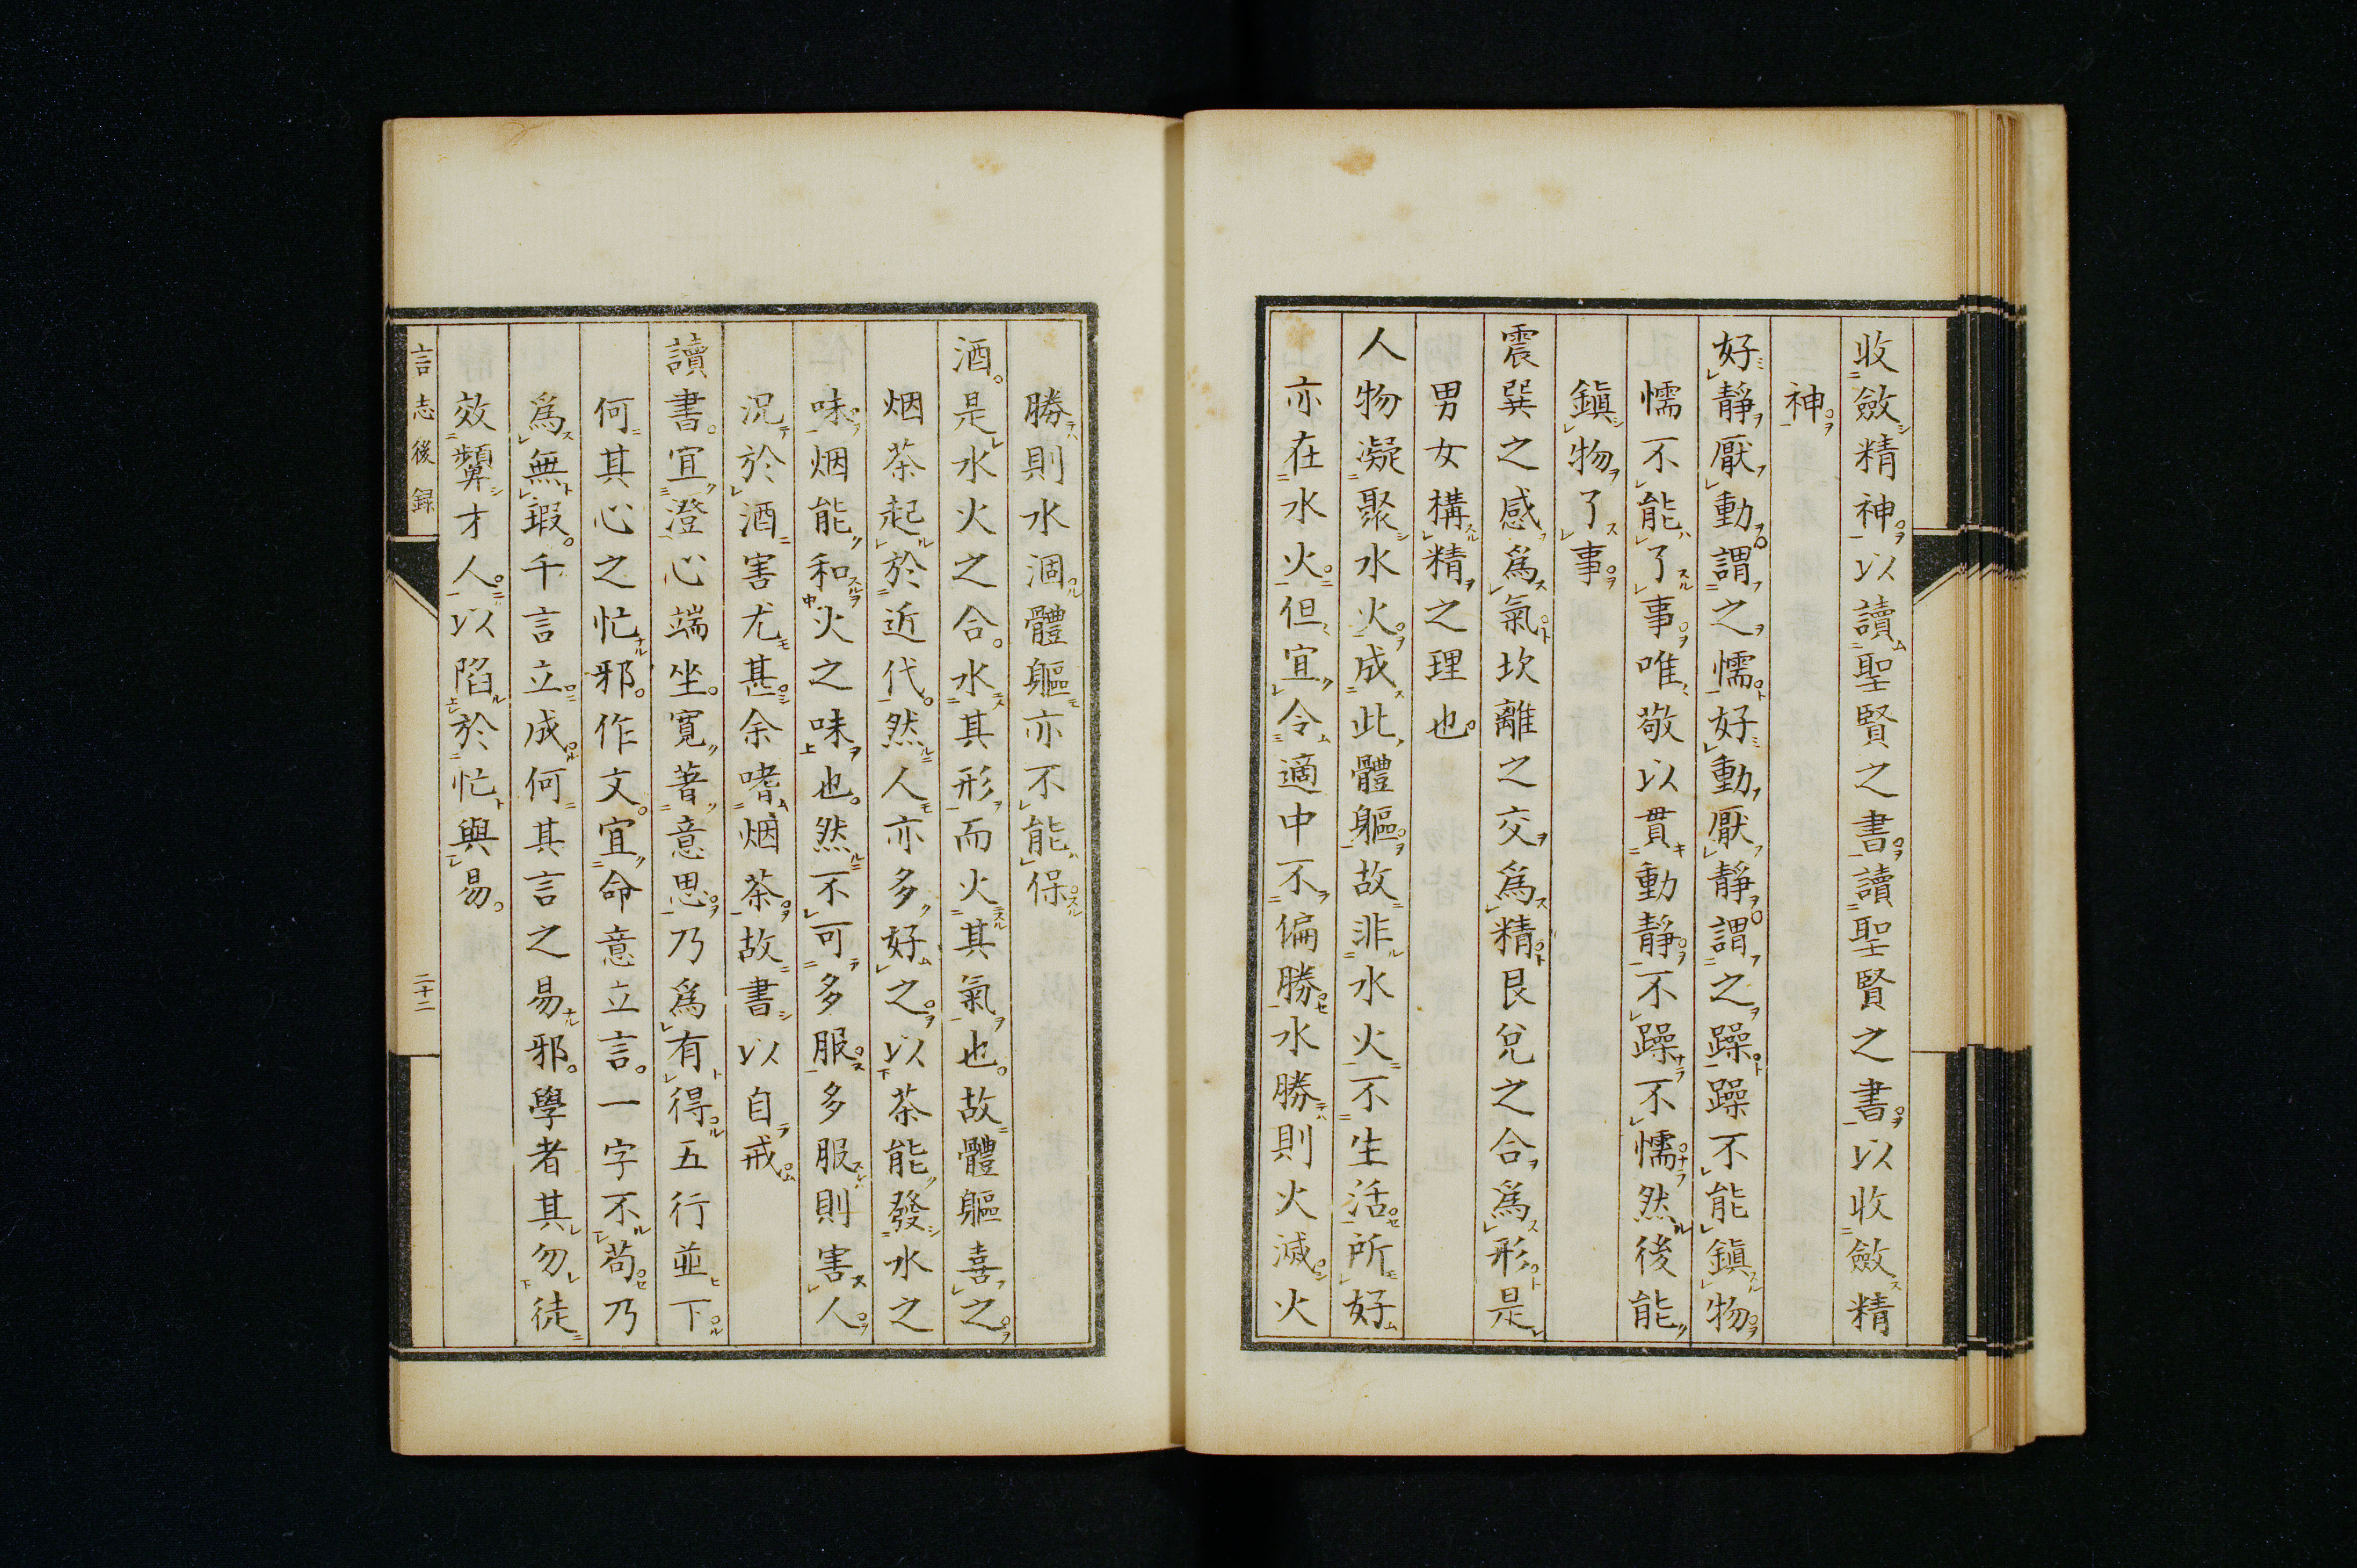 收斂精神。以讀聖賢之書。讀聖賢之書。以收斂精
神。
好靜厭動。謂之懦。好動厭靜。謂之躁。躁不能鎭物。
懦不能了事。唯敬以貫動靜。不躁不懦。然後能
鎭物了事。
震巽之感爲氣。坎離之交爲精。艮兌之合爲形。是
男女構精之理也。
人物凝聚水火。成此體軀。故非水火不生活。所好
亦在水火。但宜令適中不偏勝。水勝則火滅。火
勝則水涸。體軀亦不能保。
酒。是水火之合。水其形而火其氣也。故體軀喜之。
烟茶起於近代。然人亦多好之。以茶能發水之
味。烟能和火之味也。然不可多服。多服則害人。
況於酒害尤甚。余嗜烟茶。故書以自戒。
讀書。宜澄心端坐。寛著意思。乃爲有得。五行並下。
何其心之忙邪。作文。宜命意立言。一字不苟。乃
爲無瑕。千言立成。何其言之易邪。學者其勿徒
效顰才人。以陷於忙與易。
言志後録
二十二